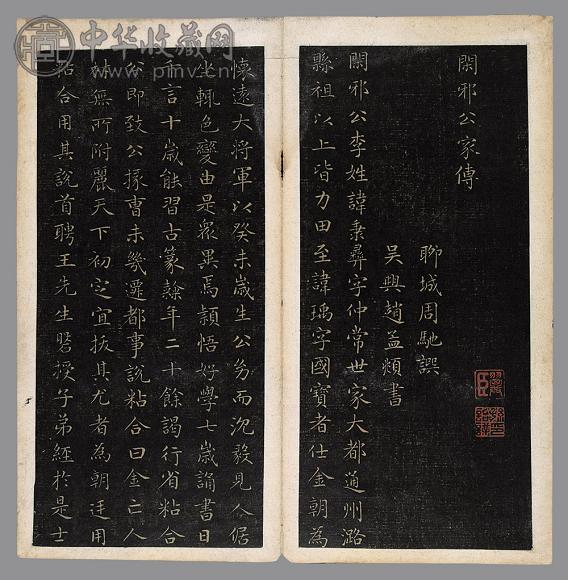 閑邪公家傳
聊城周馳譔
吳興趙孟頫書
閑邪公李姓諱秉彝字仲常世家大都通州潞
縣祖以上皆力田至諱瑀字國寶者仕金朝為
懷遠大將軍以癸未歲生公幼而沉毅見人倨
坐輒色變由是衆異焉穎悟好學七歲誦書日
千言十歲能習古篆隸年二十餘謁行省粘合
公即致公掾曹未幾遷都事說粘合曰金亡人
材無所附麗天下初定宜拔其尤者為朝廷用
粘合用其說首聘王先生磐授子弟經於是士
中华收藏网
www.pimv.cn